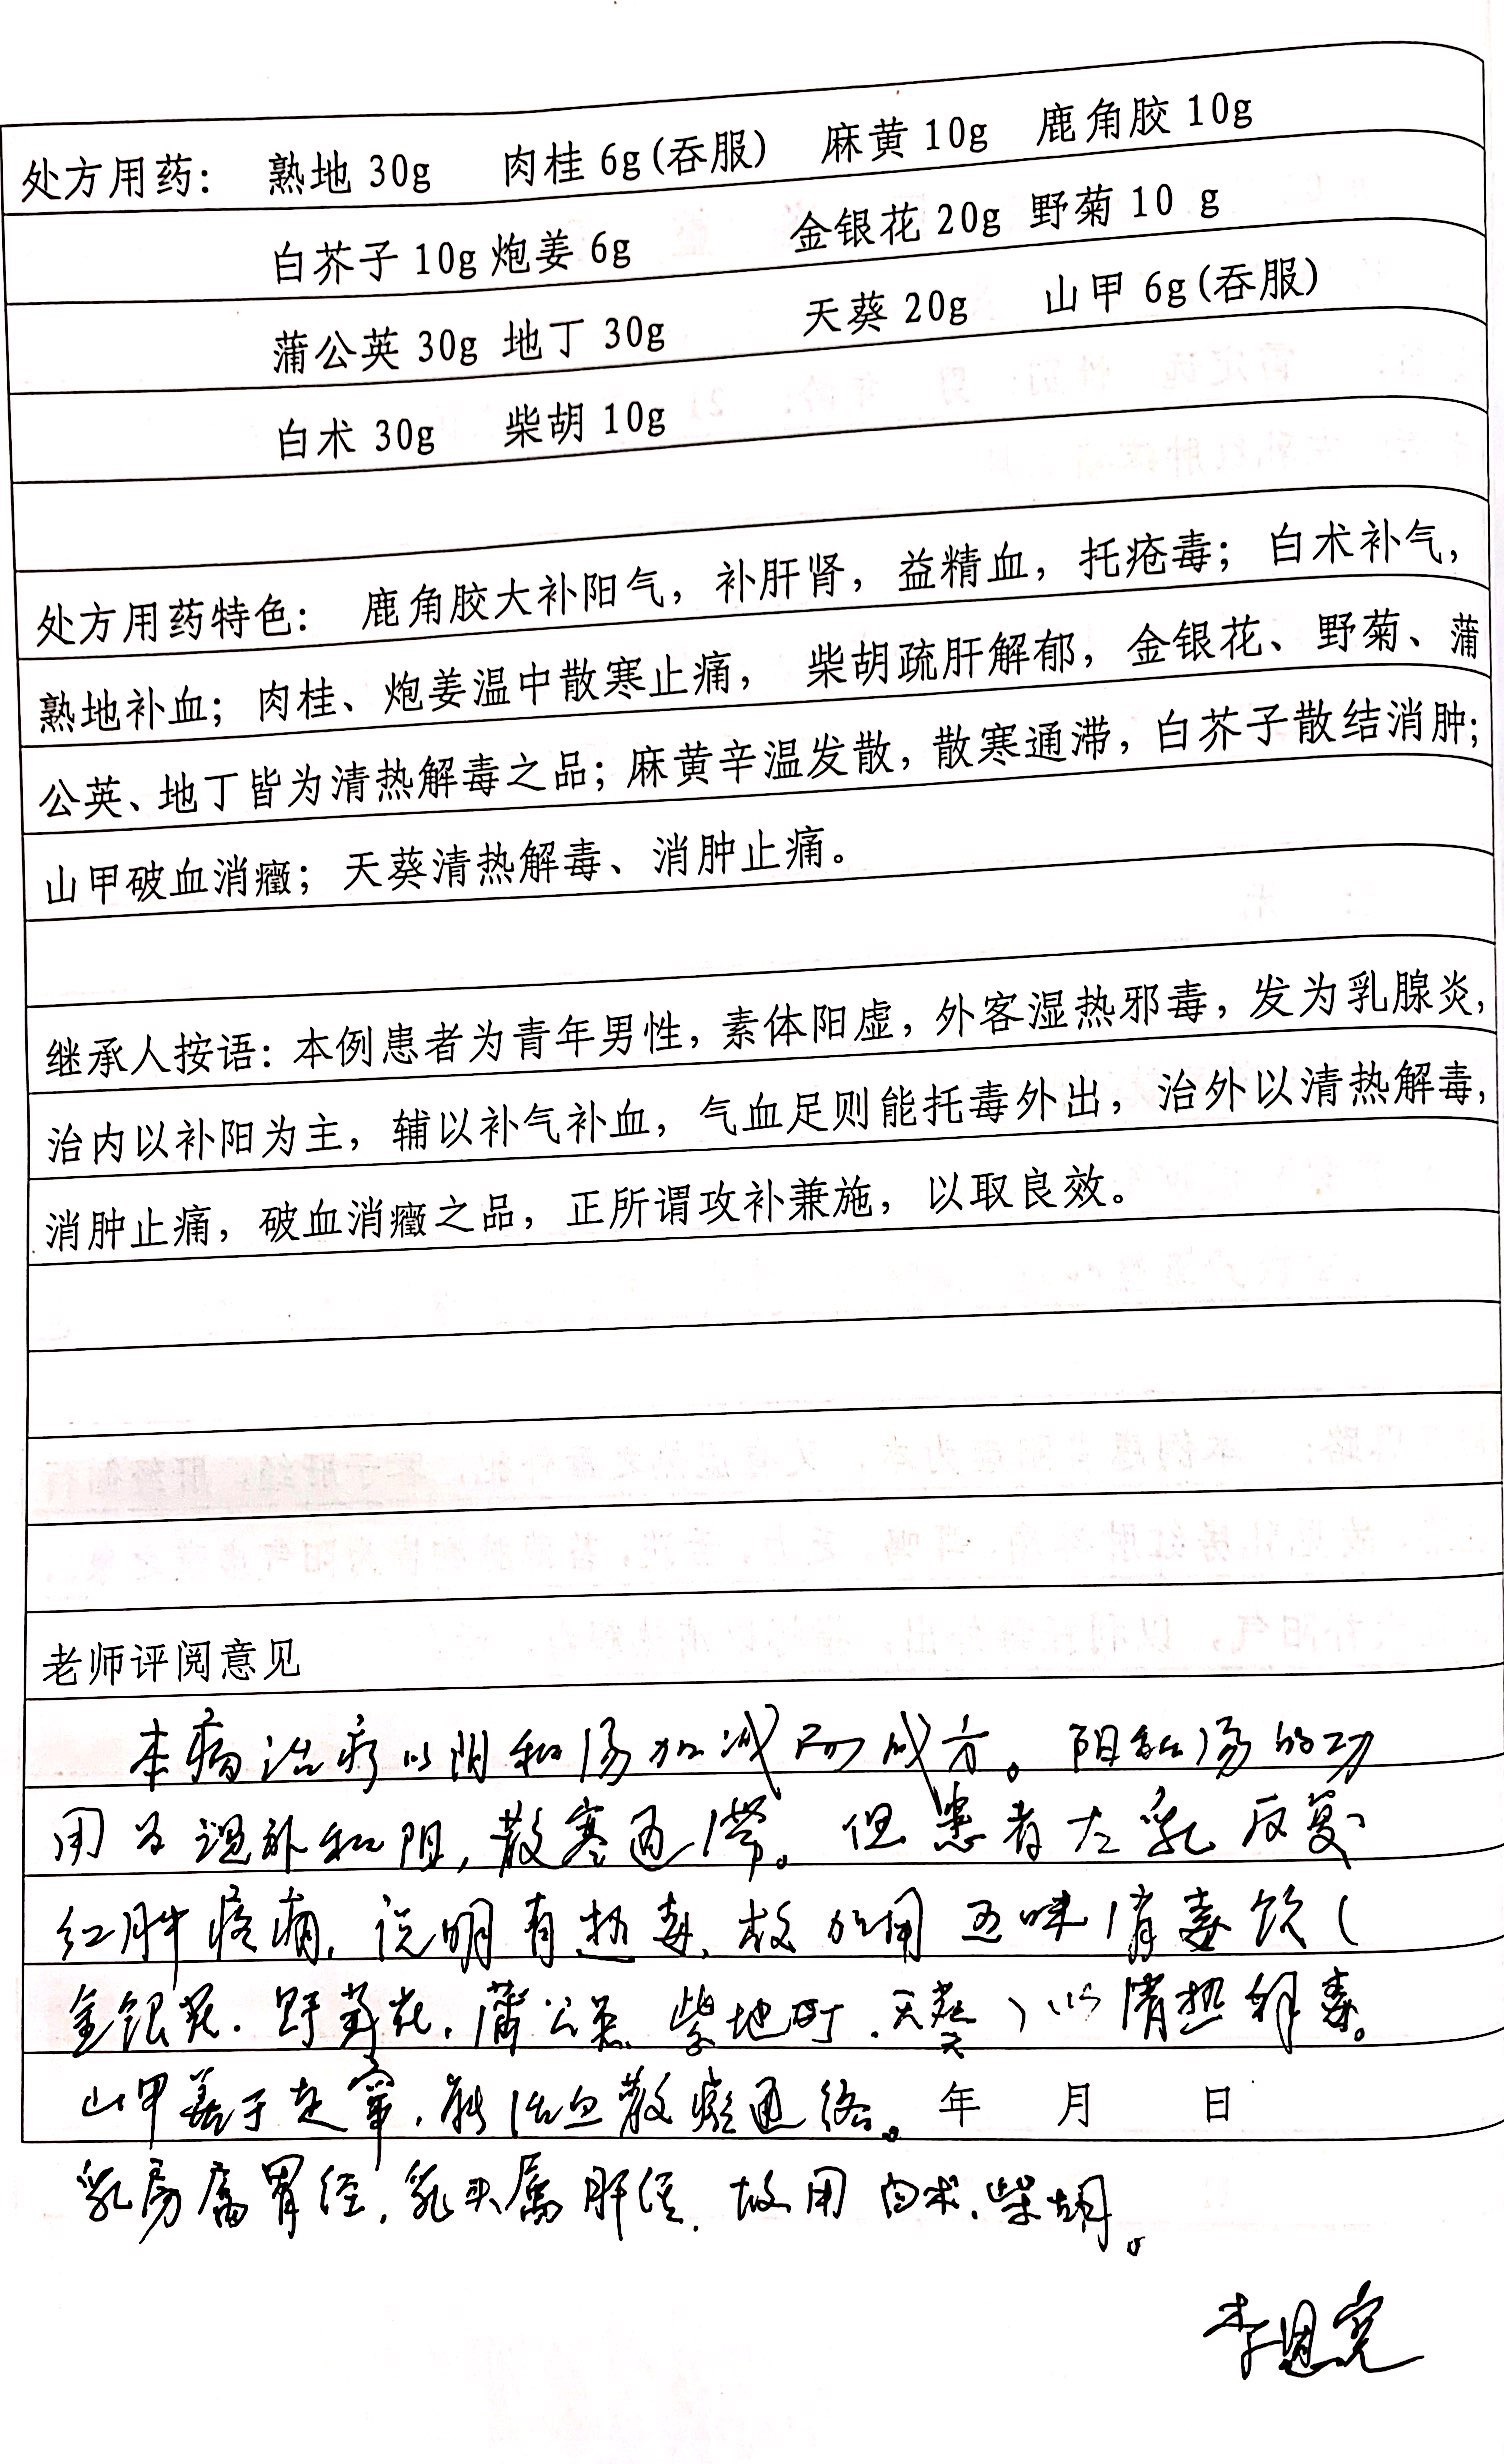 处方用药： 熟地 30g 肉桂 6g(吞服) 麻黄 10g 鹿角胶 10g
白芥子 10g 炮姜 6g 金银花 20g 野菊 10 g
蒲公英 30g 地丁 30g 天葵 20g 山甲 6g(吞服)
白术 30g 柴胡 10g
处方用药特色： 鹿角胶大补阳气，补肝肾，益精血，托疮毒；白术补气，
熟地补血；肉桂、炮姜温中散寒止痛， 柴胡疏肝解郁，金银花、野菊、蒲
公英、地丁皆为清热解毒之品；麻黄辛温发散，散寒通滞，白芥子散结消肿；
山甲破血消癥；天葵清热解毒、消肿止痛。
继承人按语：本例患者为青年男性，素体阳虚，外客湿热邪毒，发为乳腺炎，
治内以补阳为主，辅以补气补血，气血足则能托毒外出，治外以清热解毒，
消肿止痛，破血消癥之品，正所谓攻补兼施，以取良效。
老师评阅意见
本病治疗以阳和汤加减而成方。阳和汤的功
用为温补和阳，散寒通滞。但患者左乳反复
红肿疼痛，说明有热毒，故加用五味消毒饮（
金银花、野菊花、蒲公英、紫地丁、天葵）以清热解毒。
山甲善于走窜，能活血散瘀通络。 年 月 日
乳房属胃经，乳头属肝经，故用白术、柴胡。
李恩宽